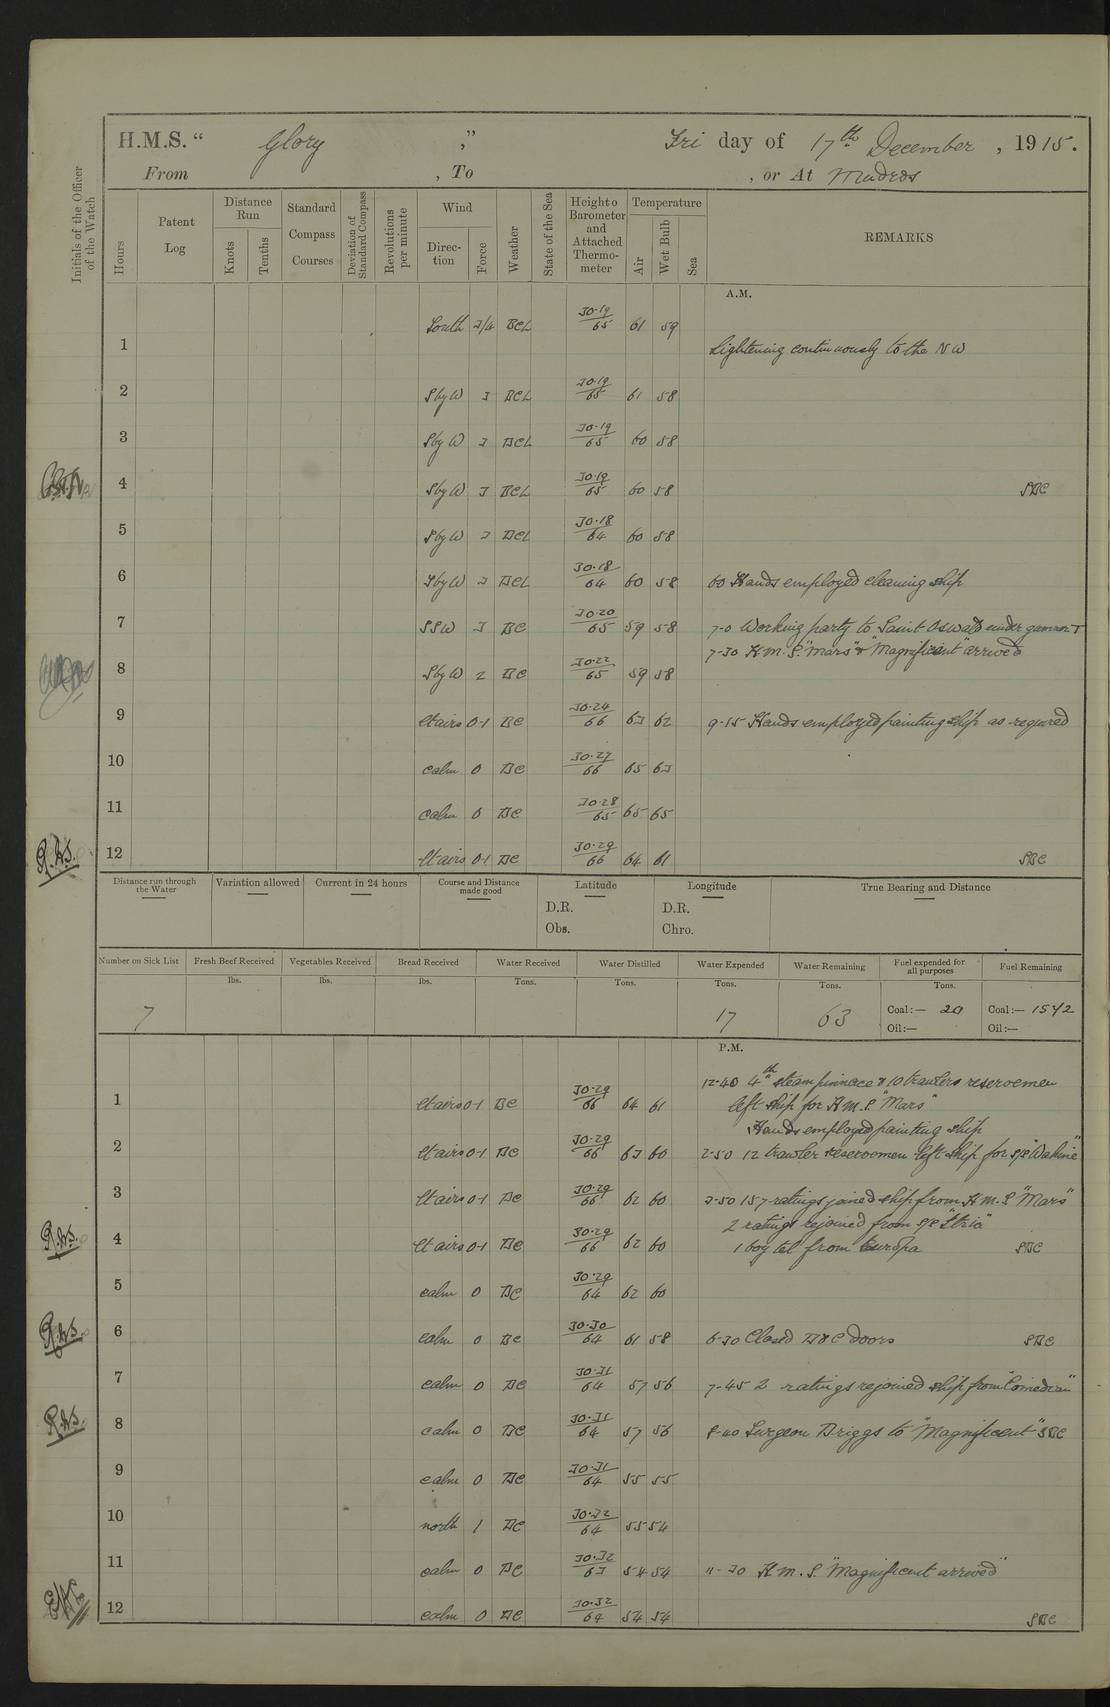 H.M.S. " Glory , " Fri day of 17th December , 1915.
From , To , or At Mudros
Initials of the Officer of the Watch
Hours
Patent Log
Distance Run
Knots
Tenths
Standard Compass Courses
Deviation of Standard Compass
Revolutions per minute
Wind
Direction
Force
Weather
State of the Sea
Height of Barometer and Attached Thermometer
Temperature
Air
Wet Bulb
Sea
REMARKS
A.M.
1 South 3/4 BCL 30.19/65 61 59
Lightening continuously to the NW
2 SbyW 3 BCL 30.19/65 61 58
3 SbyW 3 BCL 30.19/65 60 58
4 SbyW 3 BCL 30.19/65 60 58 SBC
5 SbyW 3 BCL 30.18/64 60 58
6 SbyW 3 BCL 30.18/64 60 58 6.0 Hands employed cleaning ship
7 SSW 3 BC 30.20/65 59 58 7-0 Working party to Saint Oswald under gunner T
7-30 H.M.S. "Mars" & "Magnificent" arrived
8 SbyW 2 BC 30.22/65 59 58
9 lt airs 0-1 BC 30.24/66 63 62 9-15 Hands employed painting ship as required
10 calm 0 BC 30.27/66 65 63
11 calm 0 BC 30.28/65 65 65
R.W.S. 12 lt airs 0-1 BC 30.29/66 64 61 SBC
Distance run through the Water
Variation allowed
Current in 24 hours
Course and Distance made good
Latitude
D.R.
Obs.
Longitude
D.R.
Chro.
True Bearing and Distance
Number on Sick List Fresh Beef Received Vegetables Received Bread Received Water Received Water Distilled Water Expended Water Remaining Fuel expended for all purposes Fuel Remaining
lbs. lbs. lbs. Tons. Tons. Tons. Tons. Tons.
7 17 63 Coal:— 20 Coal:— 1542
Oil:— Oil:—
P.M.
12-40 4th steam pinnace & 10 trawlers reservemen
1 lt airs 0-1 BC 30.29/66 64 61 left ship for H.M.S. "Mars"
Hands employed painting ship
2 lt airs 0-1 BC 30.29/66 63 60 2-50 12 trawler reservemen left ship for S/S "Wahine"
3 lt airs 0-1 BC 30.29/66 62 60 3-50 157 ratings joined ship from H.M.S "Mars"
2 ratings rejoined from S/S
R.W.S. 4 lt airs 0-1 BC 30.29/66 62 60 1 boy tel from Europa SBC
5 calm 0 BC 30.29/64 62 60
R.W.S. 6 calm 0 BC 30.30/64 61 58 6-30 Closed B & C doors SBC
7 calm 0 BC 30.31/64 57 56 7-45 2 ratings rejoined ship from "Comedian"
R.W.S. 8 calm 0 BC 30.31/64 57 56 8-40 Surgeon Briggs to "Magnificent" SBC
9 calm 0 BC 30.31/64 55 55
10 north 1 BC 30.32/64 55 54
11 calm 0 BC 30.32/63 54 54 11-30 H.M.S. "Magnificent arrived"
12 calm 0 BC 30.32/64 54 54 SBC